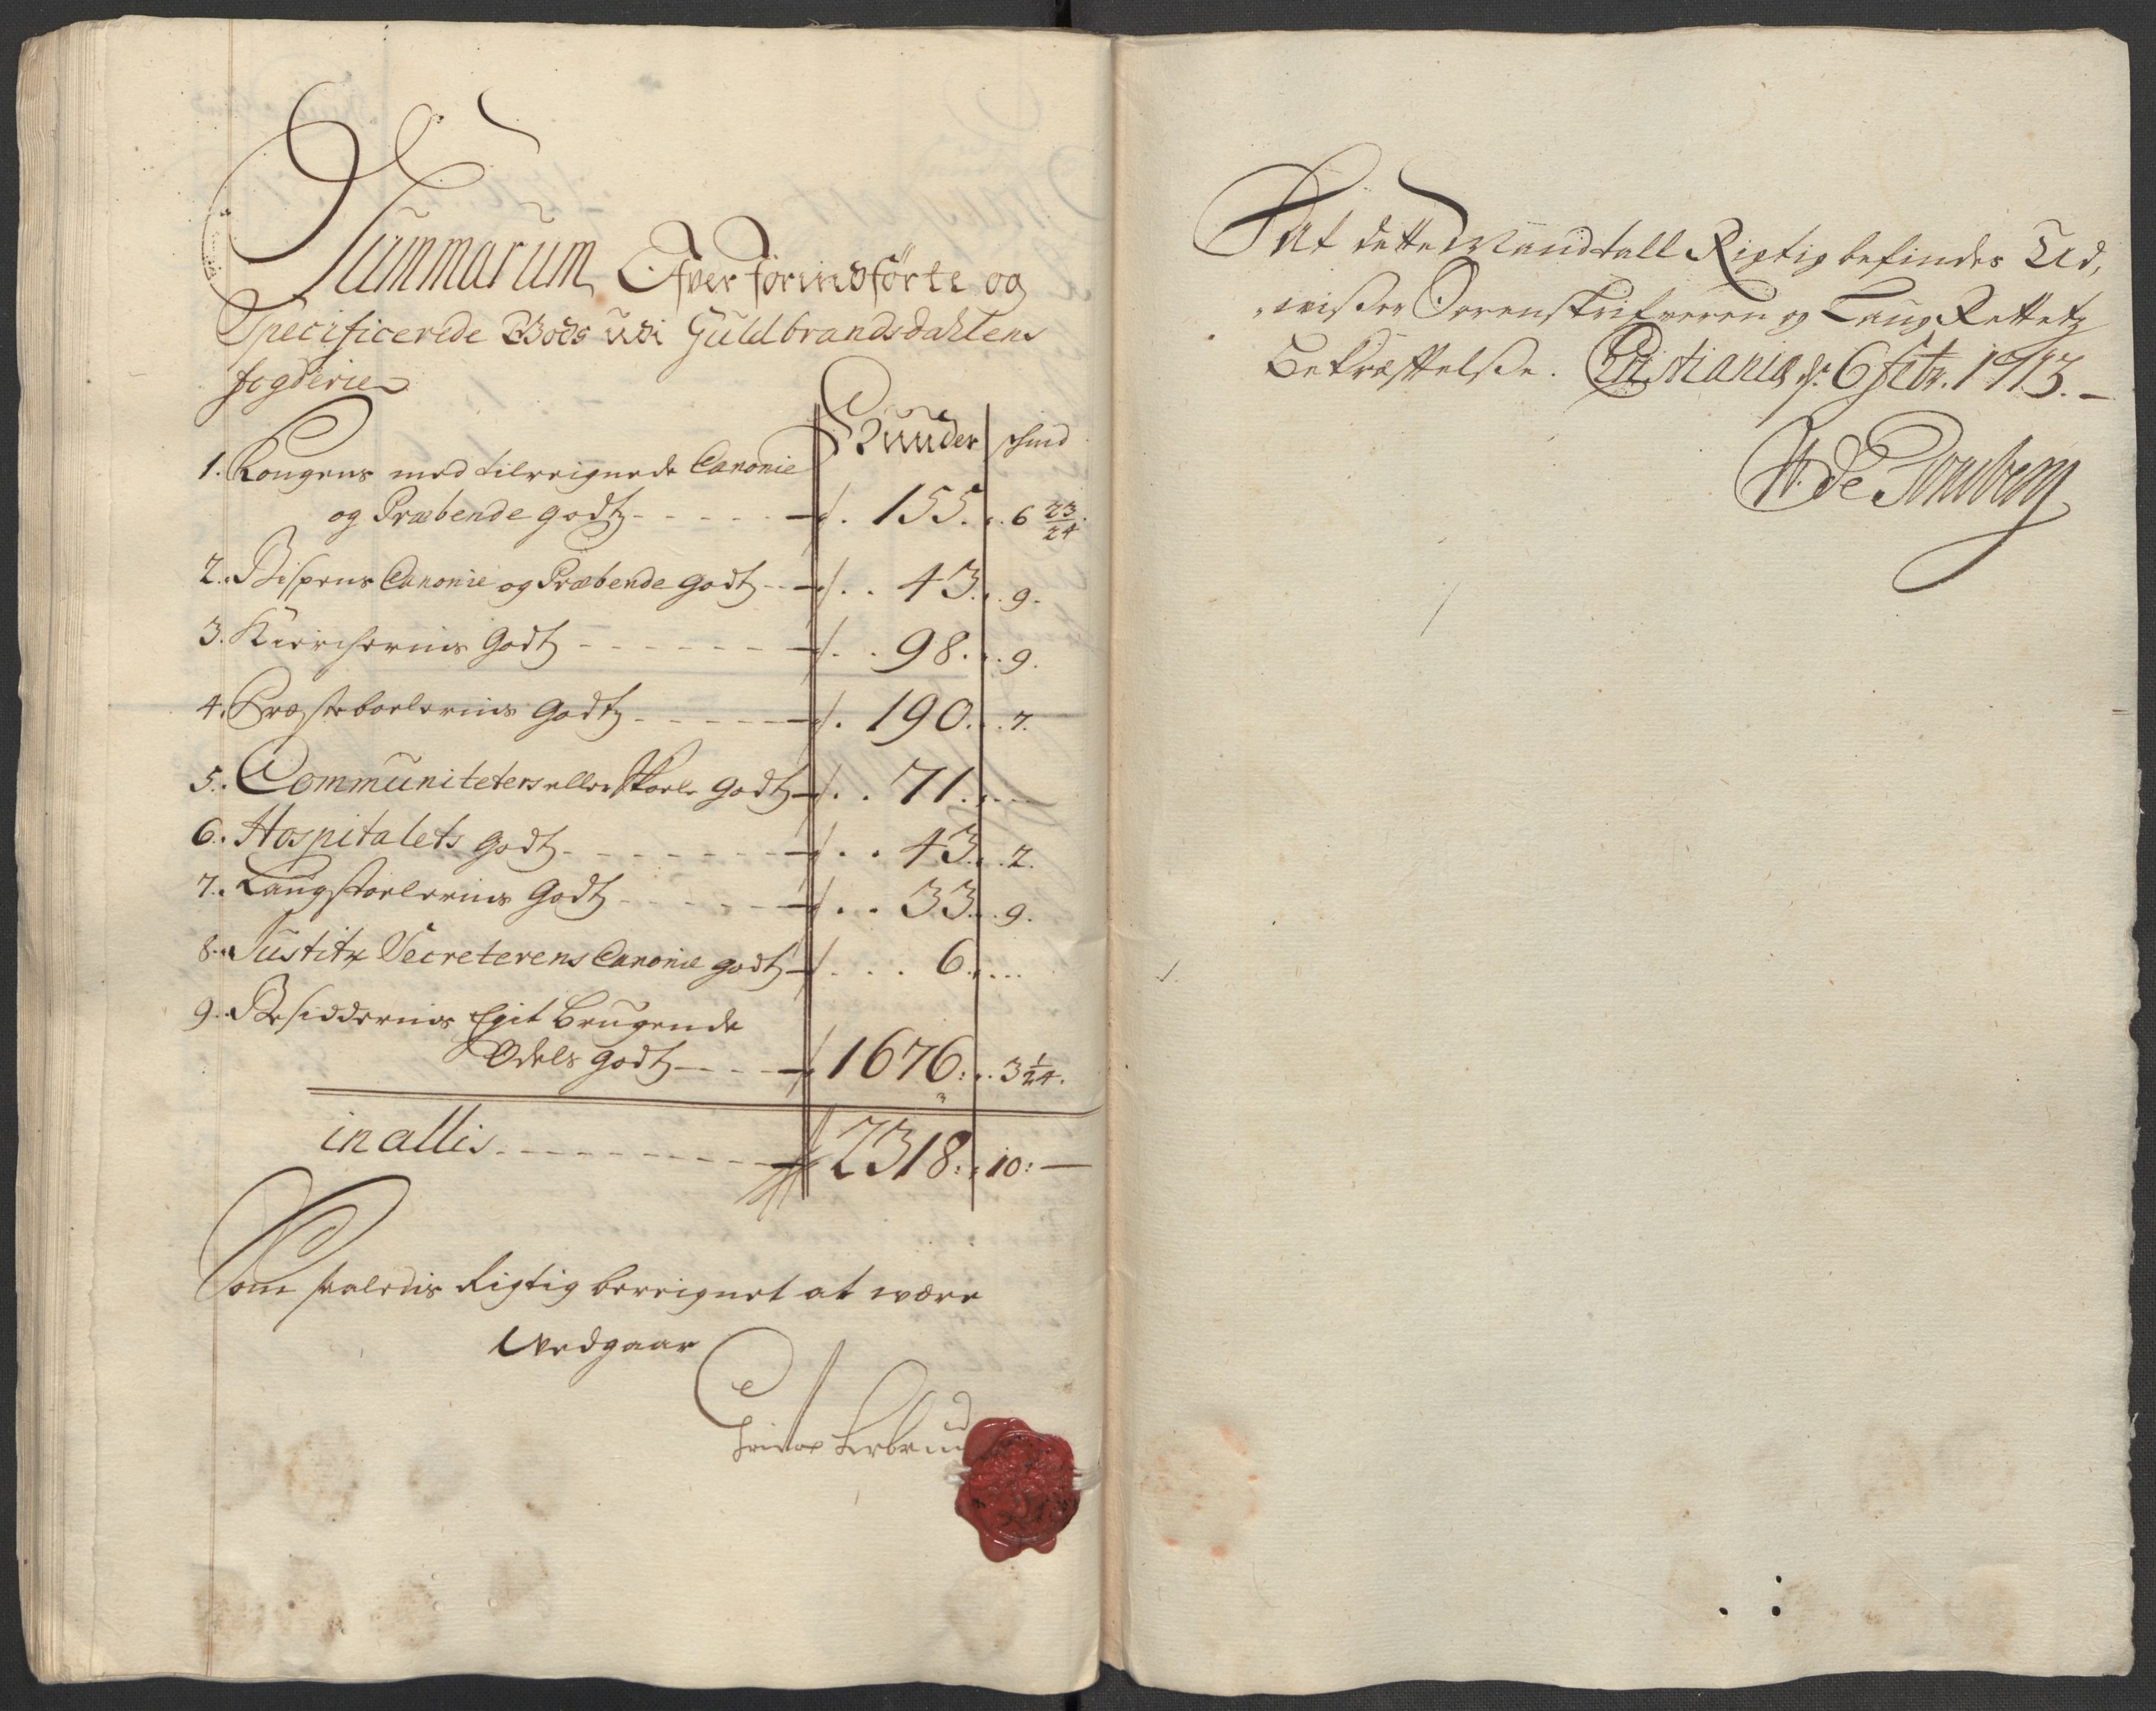 Summarum Ofver forindförte og
Specificerede Gods udi Guldbrandsdahlens
fogderie
Hunder skind
1. Kongens med tilreignede Canonie
og Præbende godtz - - - - - 155. 6 23/24.
2. Bispens Canonie og Præbende godtz - - 43. 9.
3. Kierchernis Godtz - - - - - - 98. 9.
4. Præstebolernis Godtz - - - - - 190. 7.
5. Communitetens eller Skoele godtz 71.
6. Hospitalets godtz - - - - - - 43. 2.
7. Laugstoelernis Godtz - - - - - 33. 9.
8. Justitz Secreterens Canonie godtz 6.
9. Besiddernis Egit Brugende
Odels godtz - - - 1676: 3 1/24.
in allis - - - - - - - - 2318: 10: —
Som saaledis Rigtig bereignet at være
Vedgaar
At dette Mandtall Rigtig befindes Ud,
,visser Sorenskrifveren og Laug Rettetz
Bekræftelsse. Christiania d. 6 Febr. 1713. —